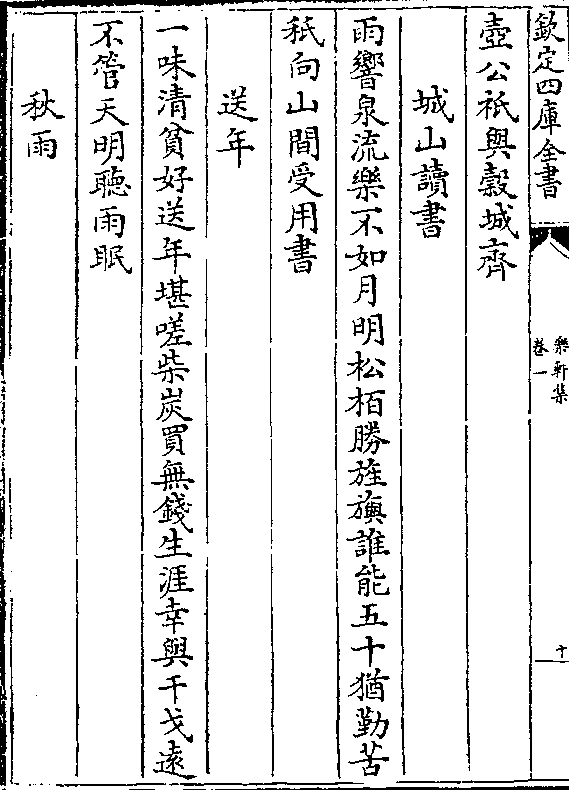 欽定四庫全書
樂軒集
卷一
十
壺公祇與穀城齊
城山讀書
雨響泉流樂不如月明松栢勝旌旟誰能五十猶勤苦
秖向山間受用書
送年
一味清貧好送年堪嗟柴炭買無錢生涯幸與干戈遠
不管天明聽雨眠
秋雨